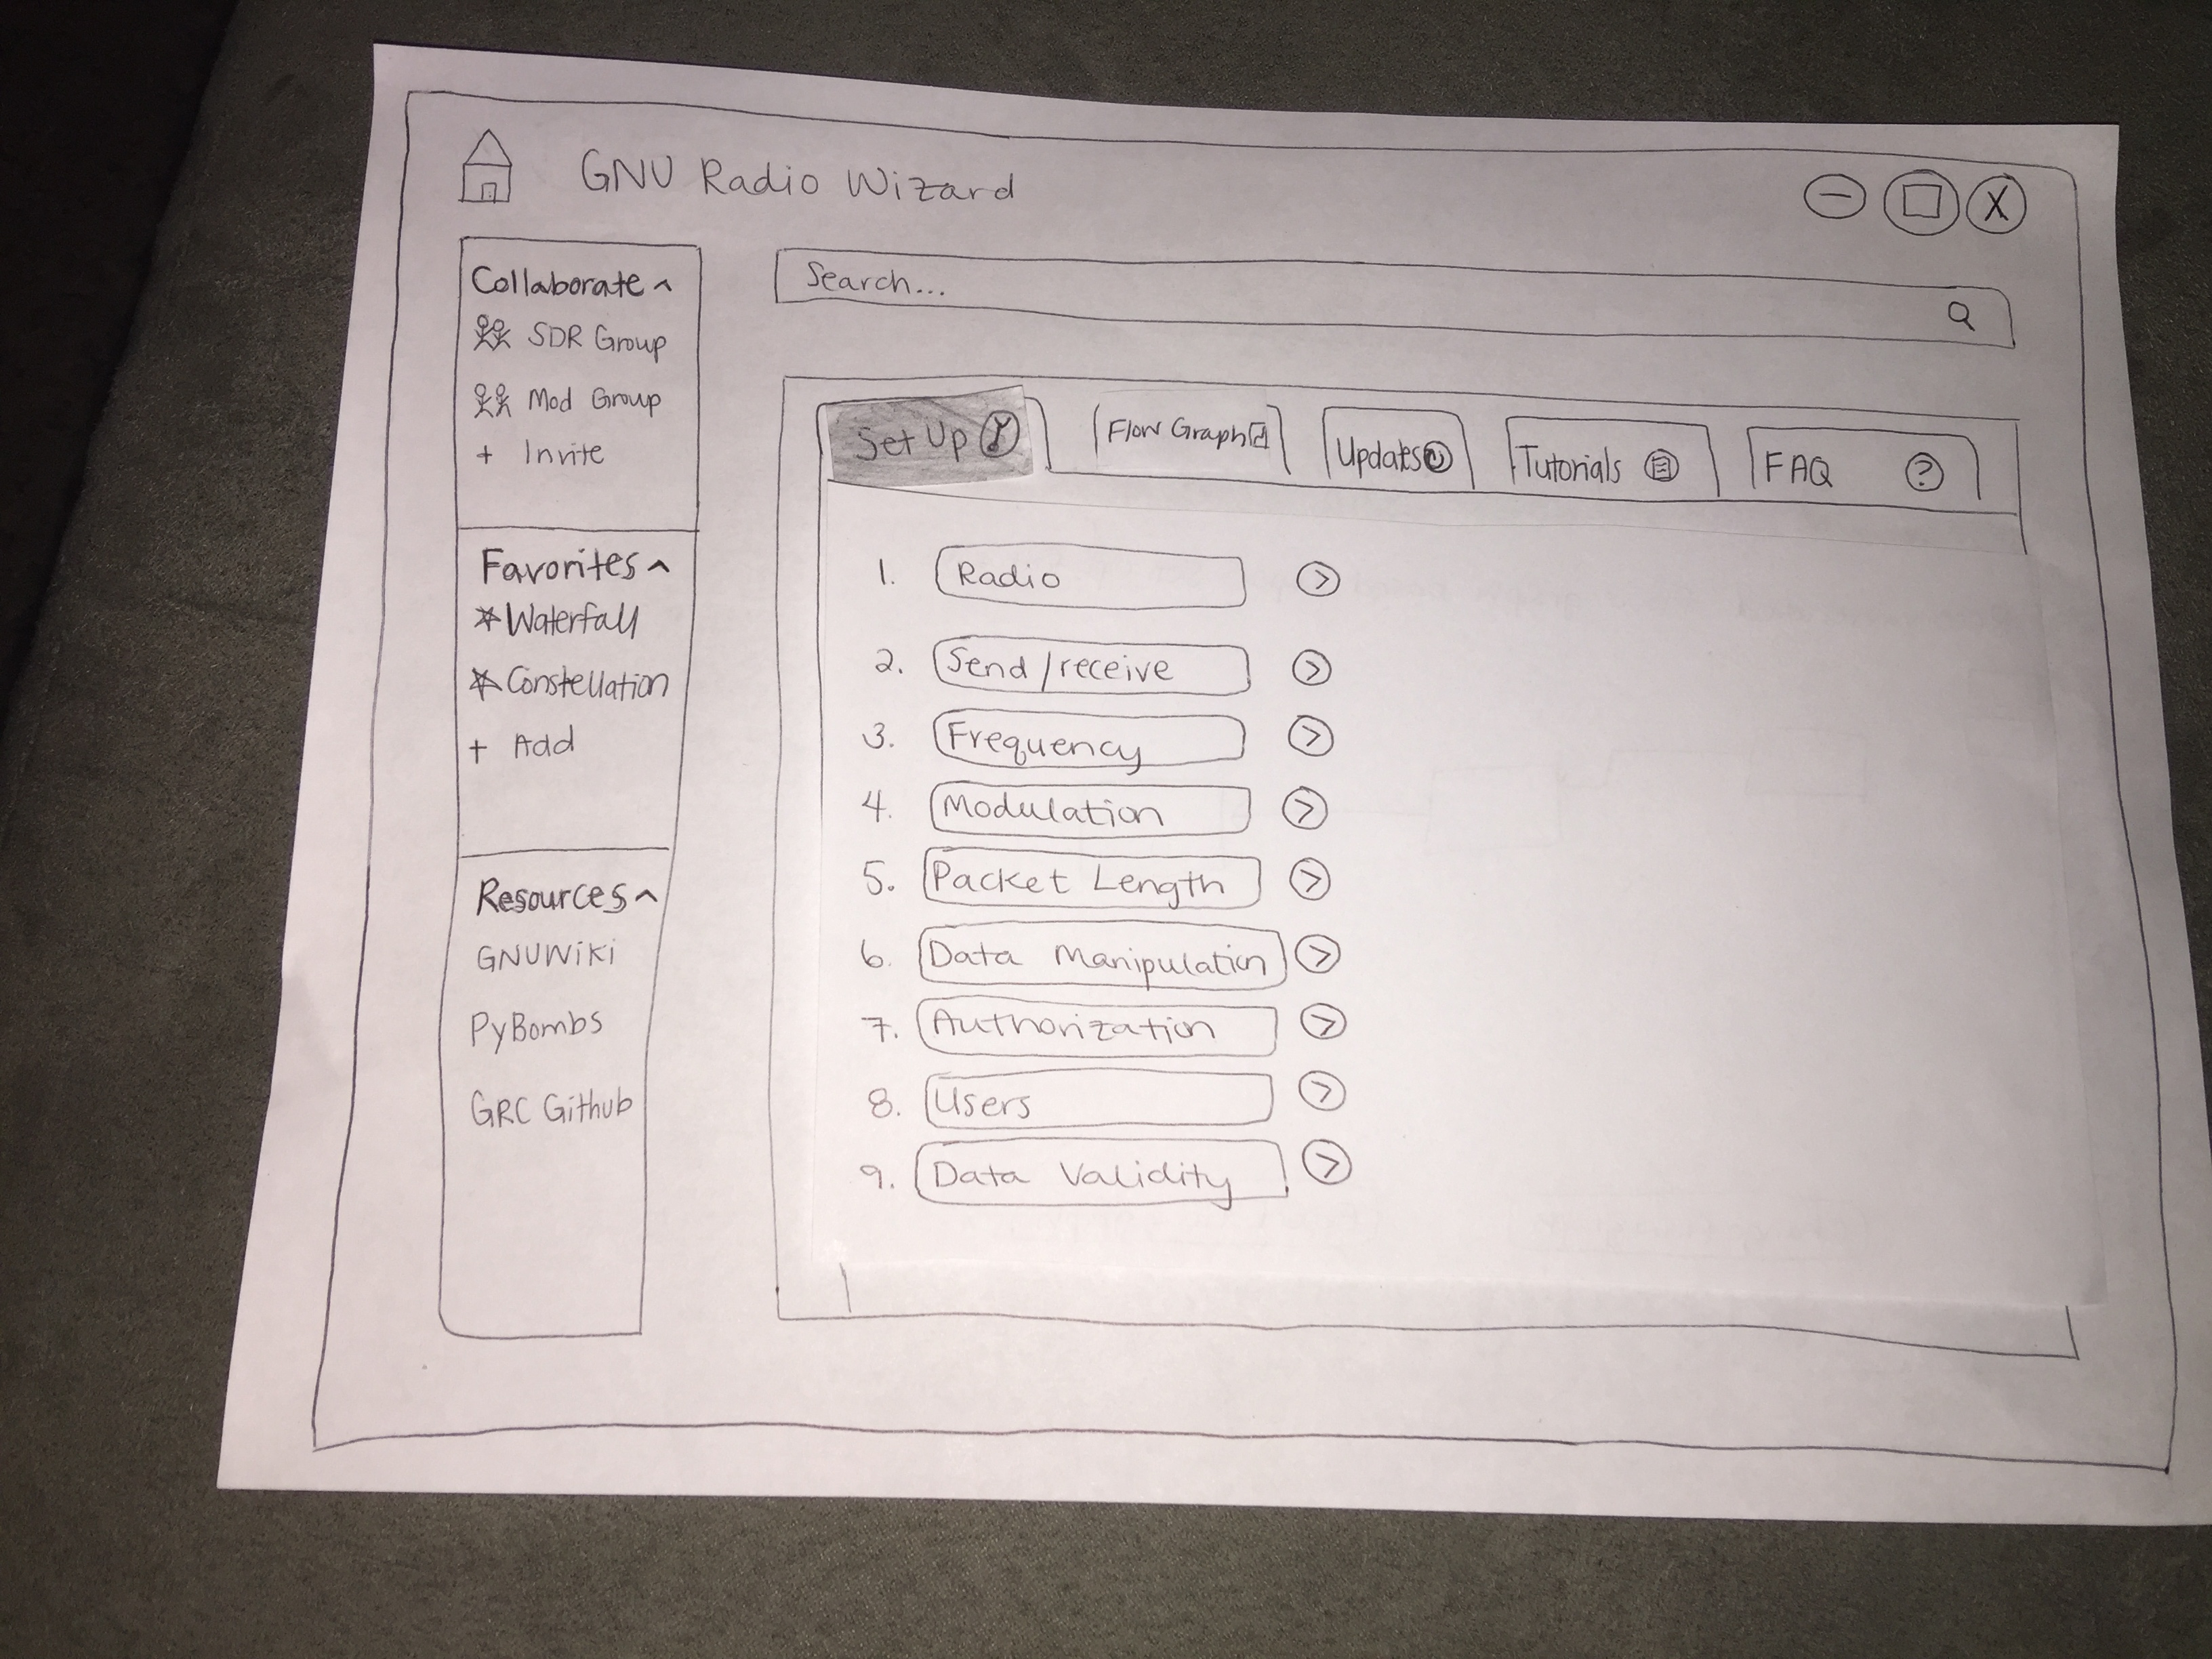 GNU Radio Wizard X
Search...
Collaborate ^
SDR Group
Mod Group
+ Invite
Favorites ^
* Waterfall
* Constellation
+ Add
Resources ^
GNU Wiki
PyBombs
GRC Github
Set Up Flow Graph Updates Tutorials FAQ ?
1. Radio >
2. Send/receive >
3. Frequency >
4. Modulation >
5. Packet Length >
6. Data Manipulation >
7. Authorization >
8. Users >
9. Data Validity >